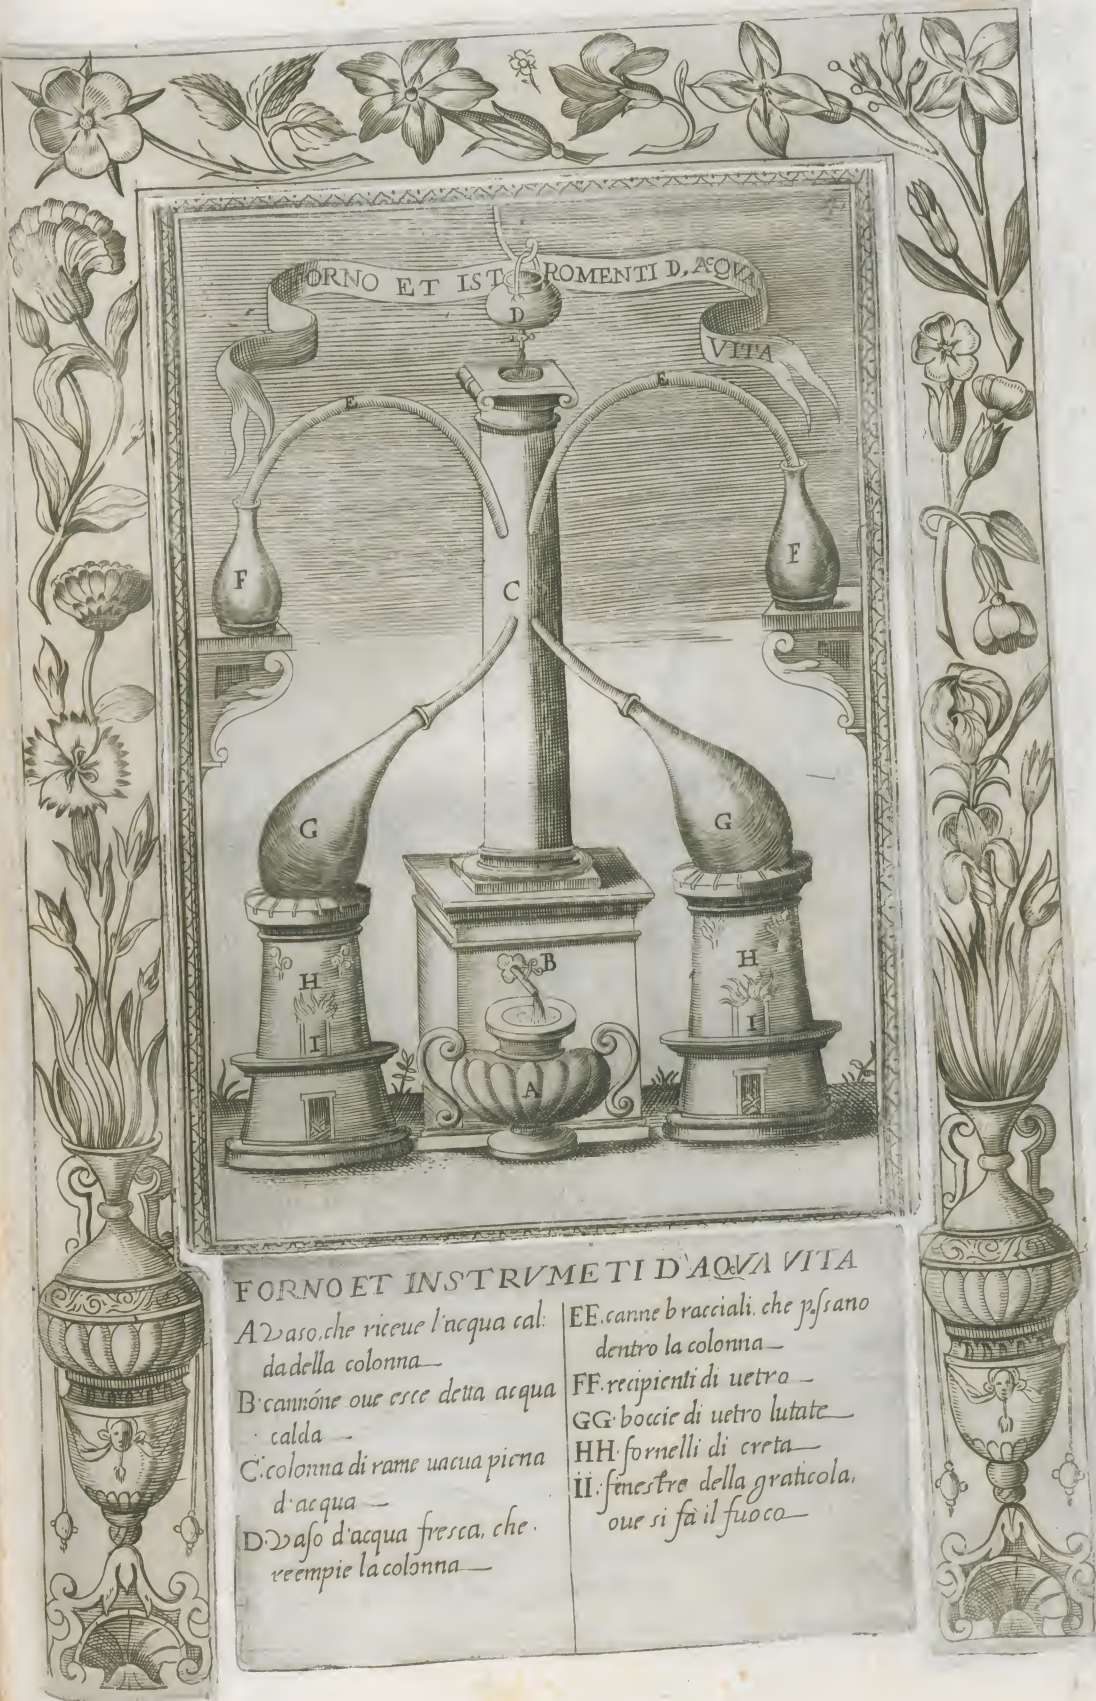 FORNO ET ISTROMENTI D, AcQVA
VITA
D
E
E
F
F
C
G
G
B
H
H
I
I
A
FORNO ET INSTRVMETI D'AQVA VITA
A Vaso, che riceue l'acqua cal:
da della colonna
B. cannóne oue esce detta acqua
calda
C. colonna di rame uacua piena
d'acqua
D. Vaſo d'acqua fresca, che
reempie la colonna
EE. canne bracciali, che poſsano
dentro la colonna
FF. recipienti di uetro
GG. boccie di uetro lutate
HH. fornelli di creta
II. fenestre della graticola,
oue si fà il fuoco